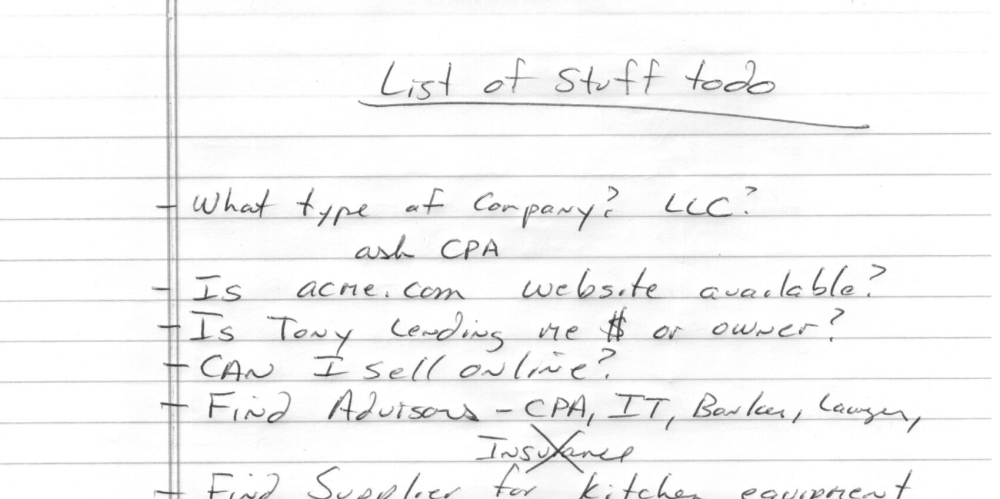 List of Stuff todo
- What type of Company? LLC?
ask CPA
- Is acme.com website available?
- Is Tony Lending me $ or owner?
- CAN I sell online?
- Find Advisors - CPA, IT, Banker, Lawyer,
Insurance
- Find Supplier for kitchen equipment